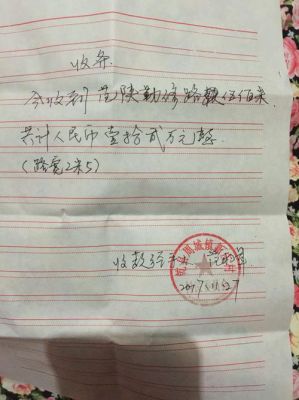 收条
今收到范陕勤修路款伍佰米
共计人民币壹拾贰万元整
(路宽2米5)
收款经手
2017